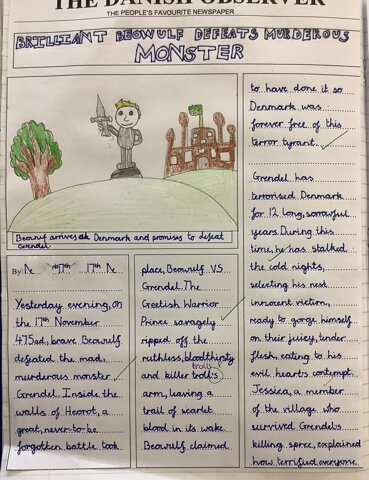 THE DANISH OBSERVER
THE PEOPLE'S FAVOURITE NEWSPAPER
BRILLIANT BEOWULF DEFEATS MURDEROUS
MONSTER
Beowulf arrives at Denmark and promises to defeat
Grendel.
By:
Yesterday evening, on
the 17th November
475ad, brave Beowulf
defeated the mad,
murderous monster
Grendel. Inside the
walls of Heorot, a
great, never-to-be
forgotten battle took
place, Beowulf V.S
Grendel. The
Geetish Warrior
Prince savagely
ripped off the
ruthless, bloodthirsty
trolls
and killer troll's
arm, leaving a
trail of scarlet
blood in its wake.
Beowulf claimed
to have done it so
Denmark was
forever free of this
terror tyrant.
Grendel has
terrorised Denmark
for 12 long, sorrowful
years. During this
time, he has stalked
the cold nights,
selecting his next
innocent victim,
ready to gorge himself
on their juicy, tender
flesh, eating to his
evil heart's contempt.
Jessica, a member
of the village who
survived Grendels
killing spree, explained
how terrified everyone